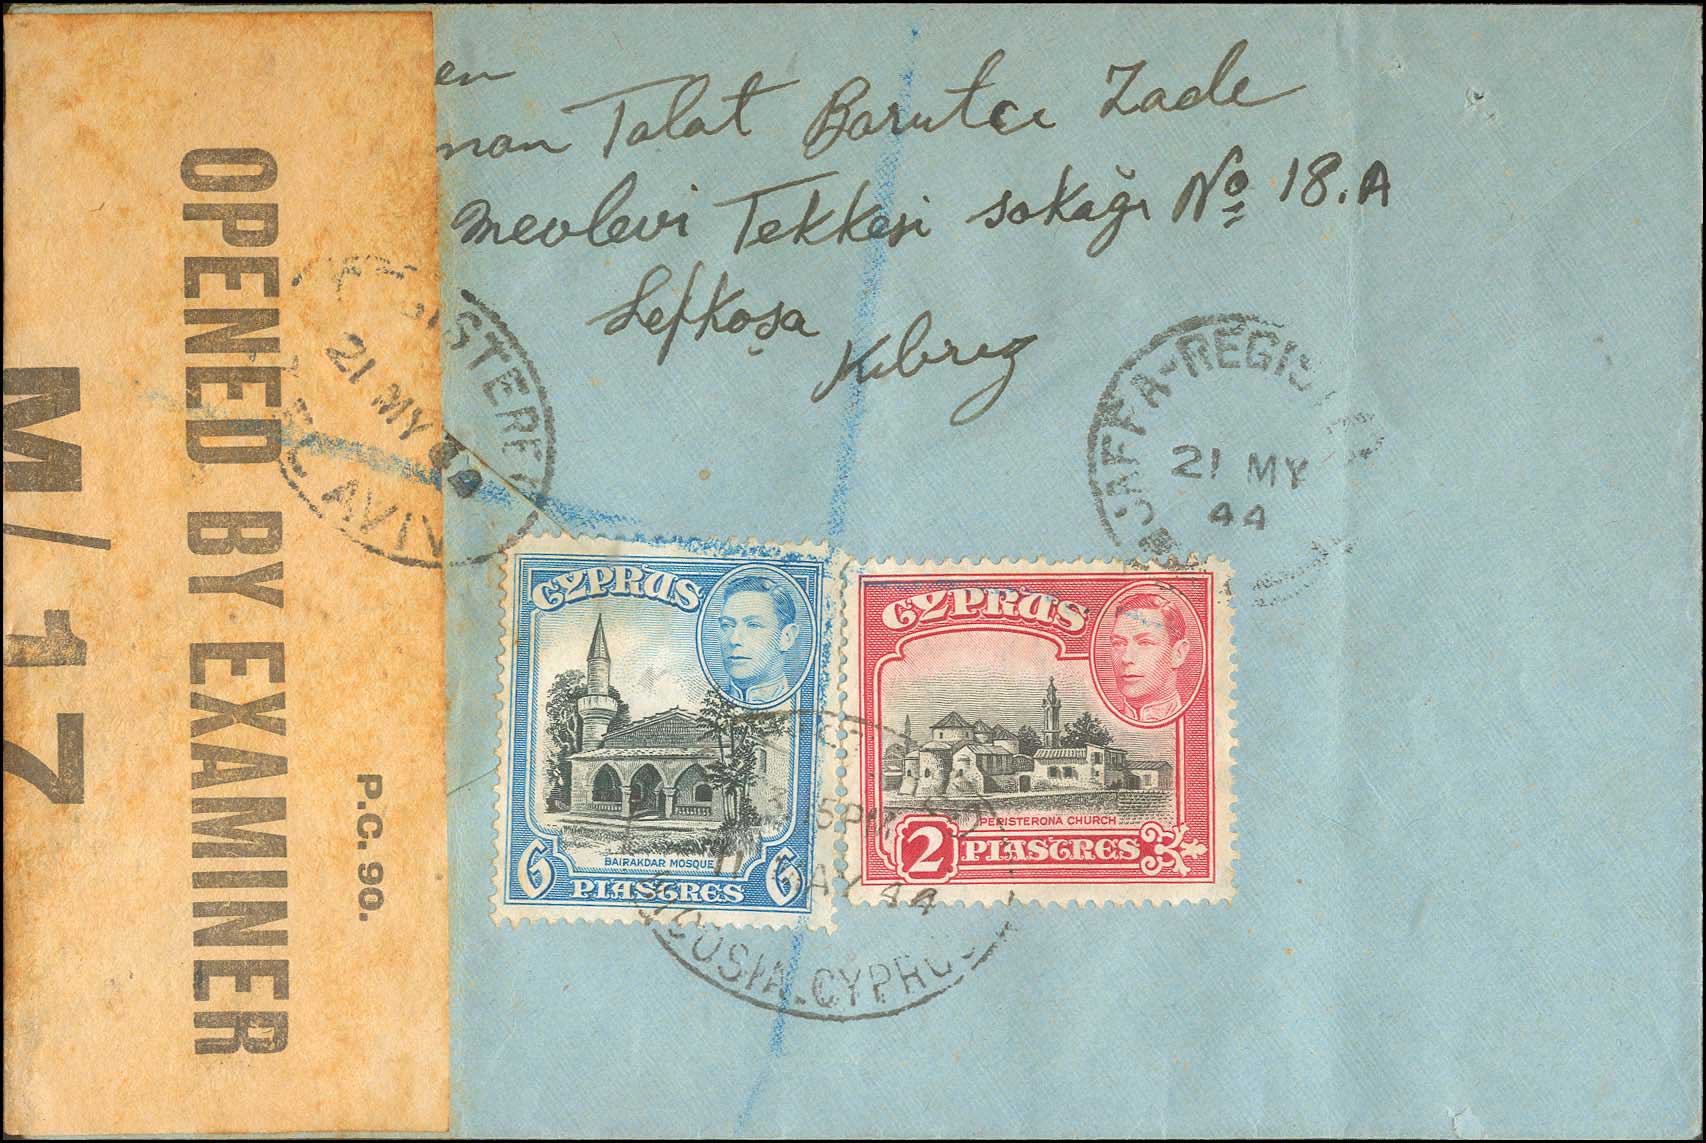 OPENED BY EXAMINER
M/17
P.C. 90.
en
nan Talat Barutcı Zade
Mevlevi Tekkesi sokağı No 18.A
Lefkoşa
Kıbrız
REGISTERED
21 MY 44
TEL AVIV
JAFFA-REGIST
21 MY
44
CYPRUS
BAIRAKDAR MOSQUE
6 PIASTRES 6
CYPRUS
PERISTERONA CHURCH
2 PIASTRES
15PM
11 MAY 44
NICOSIA.CYPRUS